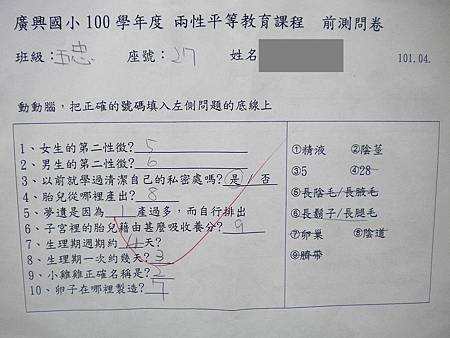 廣興國小100學年度 兩性平等教育課程 前測問卷
班級:五忠 座號:27 姓名
101.04.
動動腦,把正確的號碼填入左側問題的底線上
1、女生的第二性徵? 5
2、男生的第二性徵? 6
3、以前就學過清潔自己的私密處嗎?是/否
4、胎兒從哪裡產出? 8
5、夢遺是因為 1 產過多,而自行排出
6、子宮裡的胎兒藉由甚麼吸收養分? 9
7、生理期週期約 4 天?
8、生理期一次約幾天? 3
9、小雞雞正確名稱是? 2
10、卵子在哪裡製造? 7
①精液 ②陰莖
③5 ④28
⑤長陰毛/長腋毛
⑥長鬍子/長腿毛
⑦卵巢 ⑧陰道
⑨臍帶